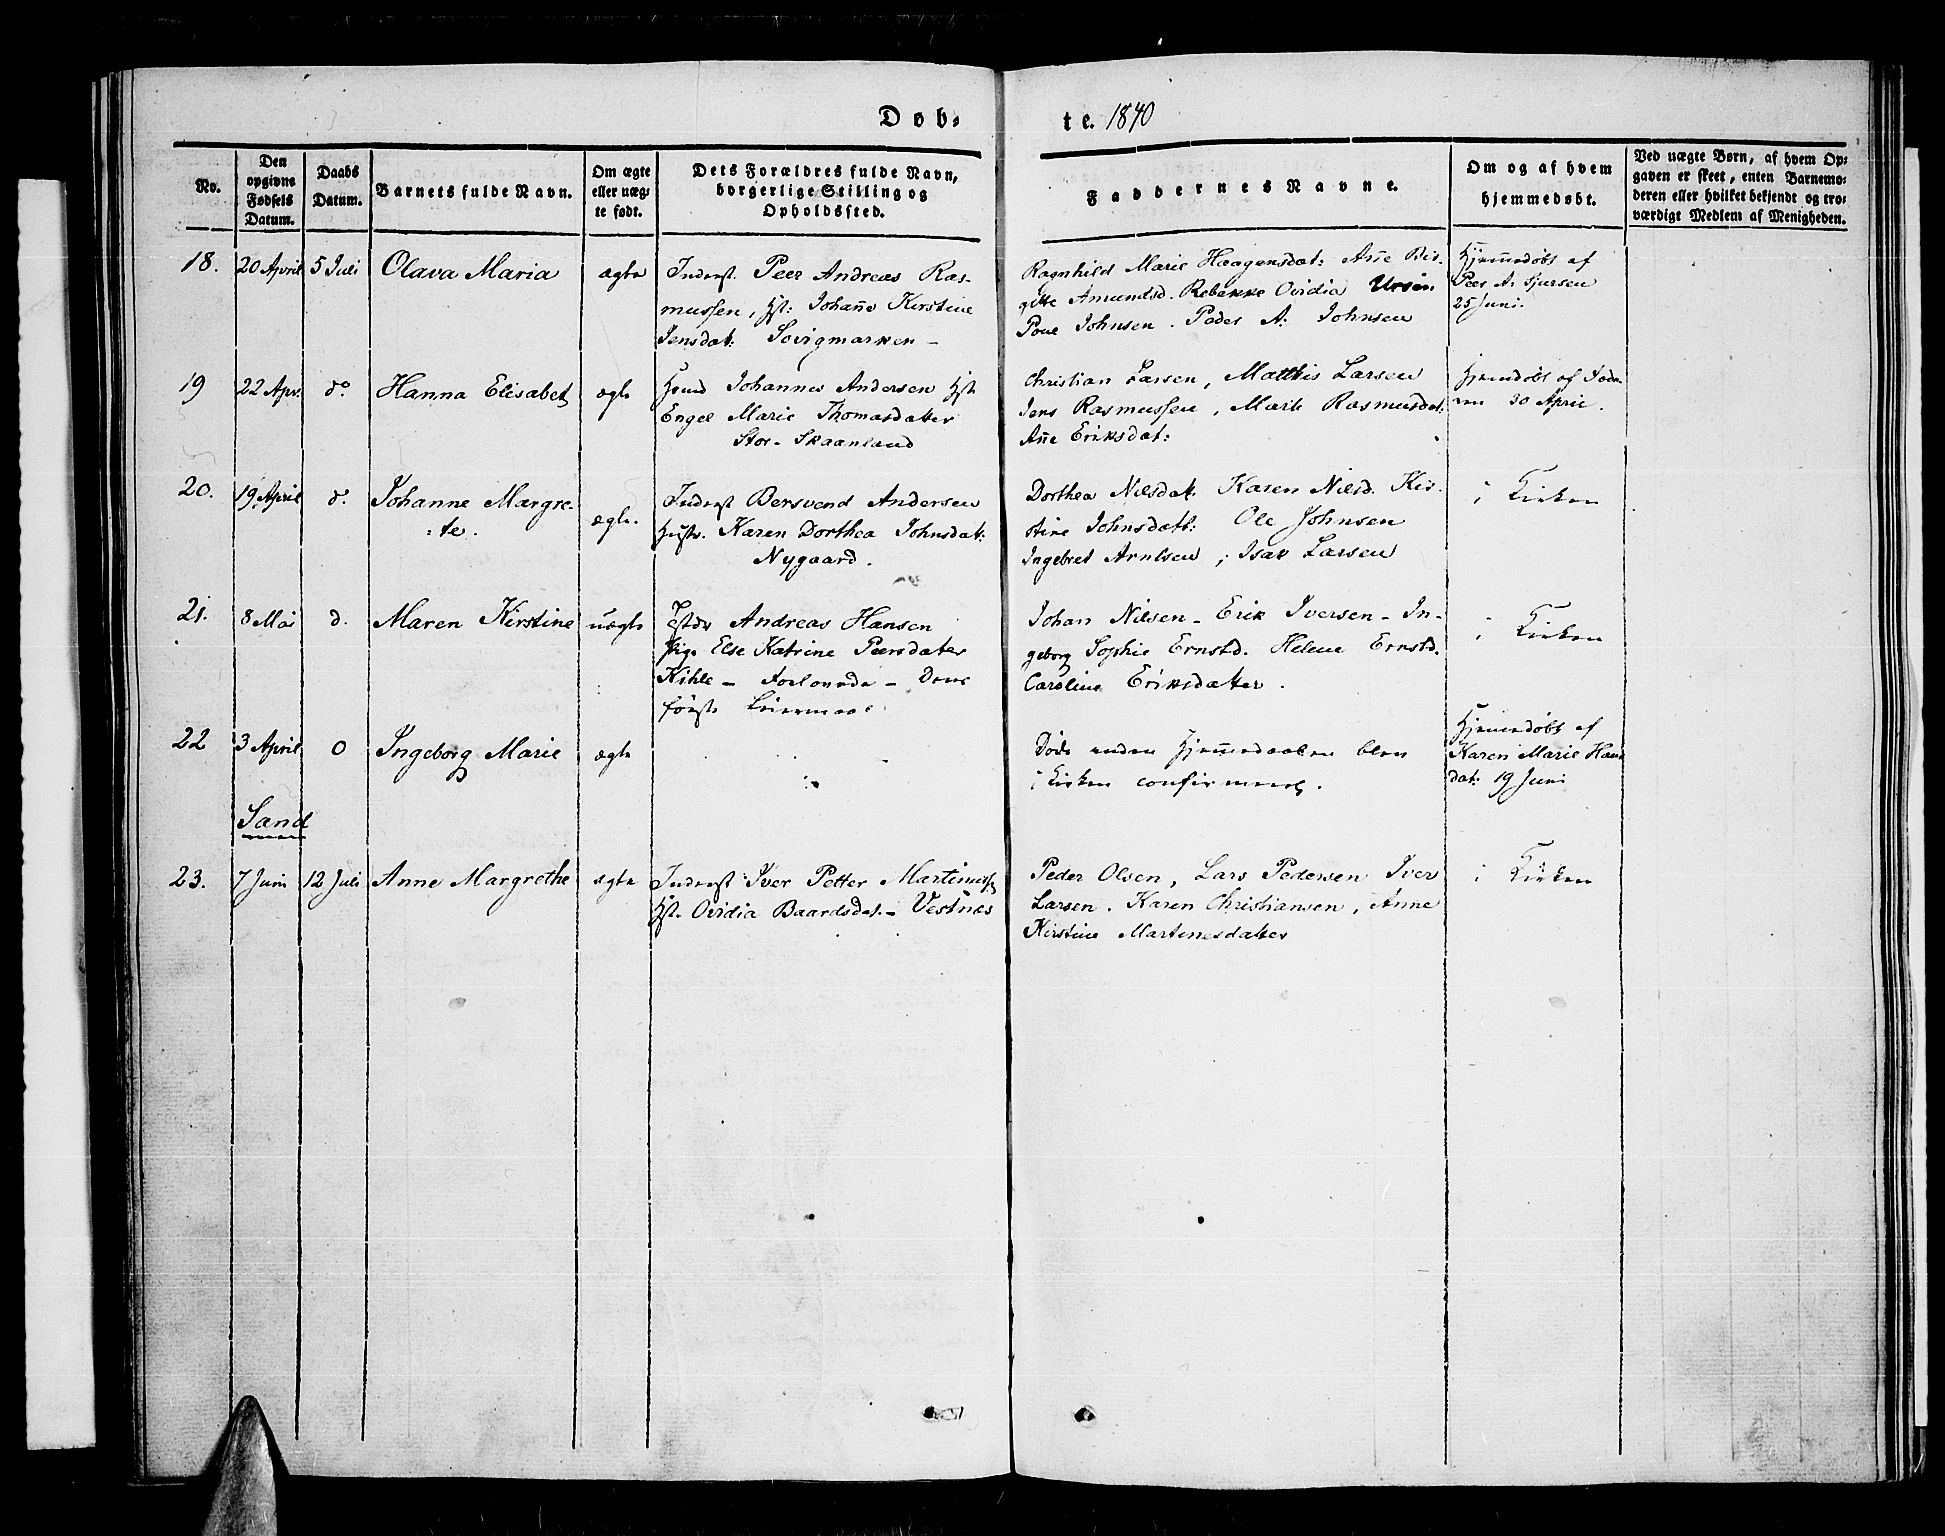 Døb-
te. 1840
No.
Den
opgivne
Fødsels
Datum.
Daabs
Datum.
Barnets fulde Navn.
Om ægte
eller uæg-
te født.
Dets Forældres fulde Navn,
borgerlige Stilling og
Opholdssted.
Faddernes Navne.
Om og af hvem
hjemmedøbt.
Ved uægte Børn, af hvem Op-
gaven er skeet, enten Barnemo-
deren eller hvilket bekjendt og tro-
værdigt Medlem af Menigheden.
18.
20 April
5 Juli
Olava Maria
ægte
Inderst. Peer Andreas Ras-
mussen, Hst: Johañe Kirstine
Jensdat: Sovigmarken -
Ragnhild Marie Haagensdat: Añe Bir-
gitte Amundsd. Rebekke Ovidia
Poul Johnsen. Peder A: Johnsen
Hjem̃edøbt af
Peer A. Sjursen
25 Juni.
19
22 Apr.
do
Hanna Elisabet
ægte
Johannes Andersen Hst
Engel Marie Thomasdatter
Stor-Skaanland
Christian Larsen, Matthis Larsen
Jens Rasmussen, Marit Rasmusdat.
Añe Eriksdat:
Hjem̃edøbt af
30 April.
20.
19 April
do
Johanne Margre-
-te.
ægte.
Inderst Bersvend Andersen
Hustr. Karen Dorthea Johnsdat:
Nygaard.
Dorthea Nilsdat. Karen Nilsd. Kir-
stine Johnsdatt: Ole Johnsen
Ingebret Arntsen, Isak Larsen
i Kirken
21.
8 Mai
d.
Maren Kirstine
uægte
Andreas Hansen
Pige Else Katrine Peersdatter
Kihle - Forlovede - Deres
første Leiermaal
Johan Nilsen - Erik Iversen - In-
geborg Sophie Ernstd. Helene Ernstd.
Caroline Eriksdatter.
i Kirken
22
3 April
0
Ingeborg Marie
ægte
Døde inden Hjem̃edaaben blev
i Kirken confirmeret.
Hjem̃edøbt af
Karen Marie Hans
dat: 19 Juni
Sand
23.
7 Juni
12 Juli
Anne Margrethe
ægte
Inderst Iver Petter Martinuss
Hst. Ovidia Baardsdat. - Vestnæs
Peder Olsen, Lars Pedersen Iver
Larsen. Karen Christiansen, Anne
Kirstine Martinesdatter
i Kirken